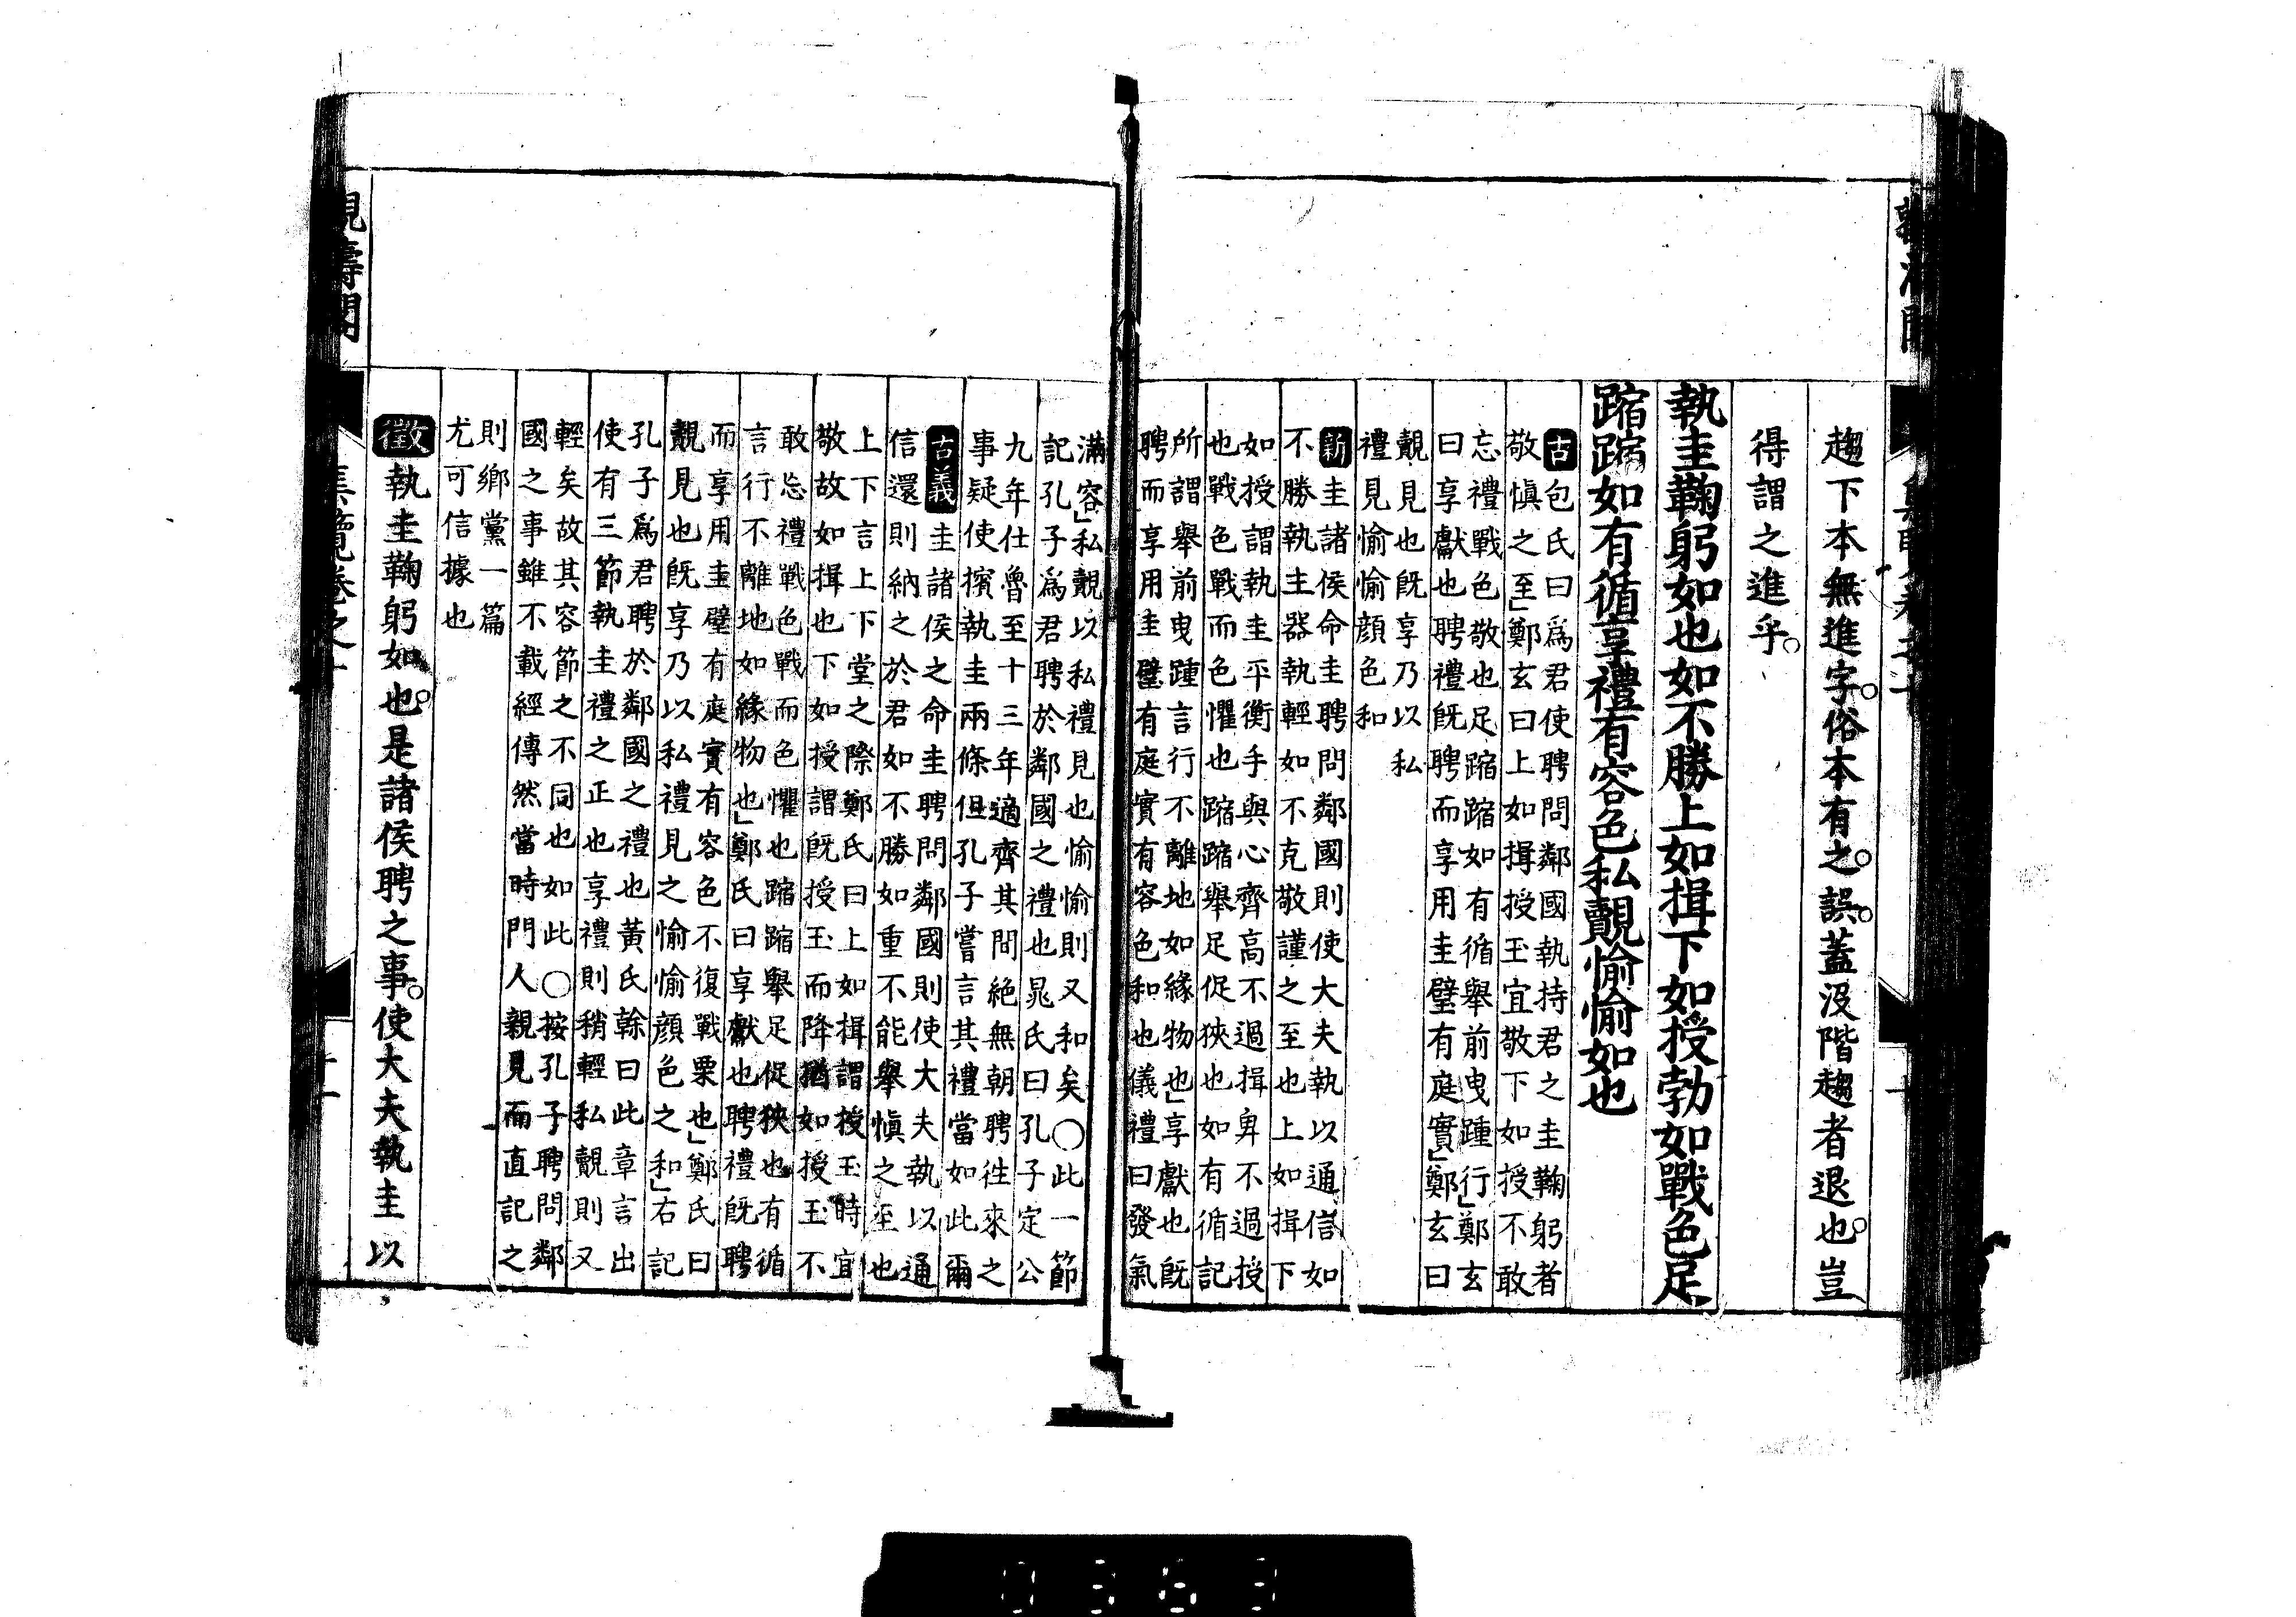 趨下本無進字。俗本有之。誤。蓋沒階趨者退也。豈
得謂之進乎。
執圭鞠躬如也如不勝上如揖下如授勃如戰色足
蹜蹜如有循享禮有容色私覿愉愉如也
古包氏曰爲君使聘問鄰國執持君之圭鞠躬者
敬愼之至」鄭玄曰上如揖授玉宜敬下如授不敢
忘禮戰色敬也足蹜蹜如有循舉前曳踵行」鄭玄
曰享獻也聘禮既聘而享用圭璧有庭實」鄭玄曰
覿見也既享乃以私
禮見愉愉顔色和
新圭諸侯命圭聘問鄰國則使大夫執以通信如
不勝執主器執輕如不克敬謹之至也上如揖下
如授謂執圭平衡手與心齊高不過揖卑不過授
也戰色戰而色懼也蹜蹜舉足促狹也如有循記
所謂舉前曳踵言行不離地如緣物也」享獻也既
聘而享用圭璧有庭實有容色和也儀禮曰發氣
滿容」私覿以私禮見也愉愉則又和矣〇此一節
記孔子爲君聘於鄰國之禮也晁氏曰孔子定公
九年仕魯至十三年適齊其間絶無朝聘往來之
事疑使擯執圭兩條但孔子嘗言其禮當如此爾
古義圭諸侯之命圭聘問鄰國則使大夫執以通
信還則納之於君如不勝如重不能舉愼之至也
上下言上下堂之際鄭氏曰上如揖謂授玉時宜
敬故如揖也下如授謂既授玉而降猶如授玉不
敢忘禮戰色戰而色懼也蹜蹜舉足促狹也有循
言行不離地如緣物也」鄭氏曰享獻也聘禮既聘
而享用圭璧有庭實有容色不復戰栗也」鄭氏曰
覿見也既享乃以私禮見之愉愉顔色之和」右記
孔子爲君聘於鄰國之禮也黃氏榦曰此章言出
使有三節執圭禮之正也享禮則稍輕私覿則又
輕矣故其容節之不同也如此〇按孔子聘問鄰
國之事雖不載經傳然當時門人親見而直記之
則鄉黨一篇
尤可信據也
徵執圭鞠躬如也。是諸侯聘之事。使大夫執圭以
集覽卷之十
0363